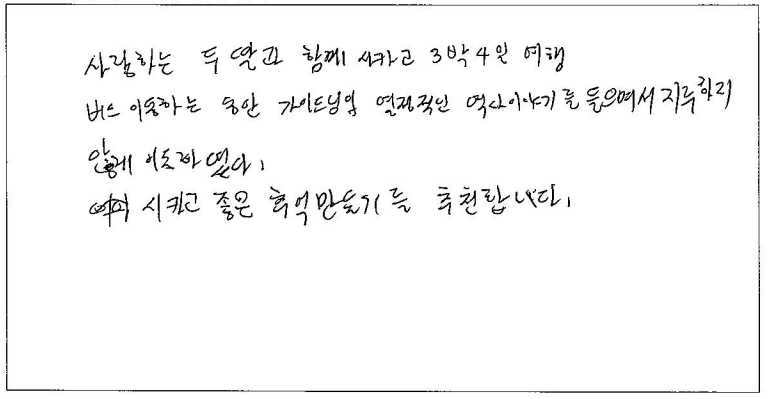 사랑하는 두 딸과 함께 시카고 3박4일 여행
버스 이동하는 동안 가이드님의 열정적인 역사이야기를 들으면서 지루하지
않게 이동하였다.
시카고 좋은 추억만들기를 추천합니다.